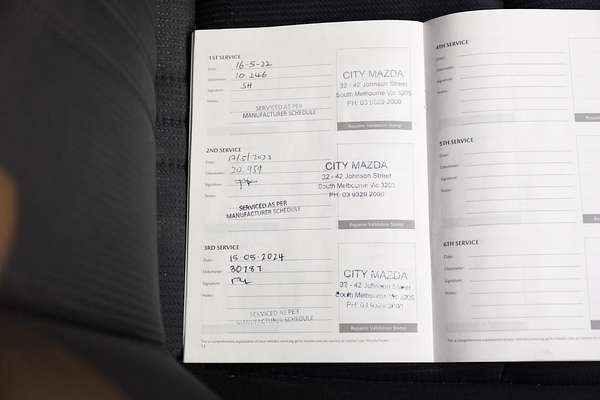 1ST SERVICE
Date: 16-5-22
Odometer: 10 246
Signature: SH
Notes:
SERVICED AS PER
MANUFACTURER SCHEDULE
CITY MAZDA
32 - 42 Johnson Street
South Melbourne Vic 3205
PH: 03 9329 2000
Repairer Validation Stamp
2ND SERVICE
Date: 17/5/2023
Odometer: 20 959
Signature:
Notes:
SERVICED AS PER
MANUFACTURER SCHEDULE
CITY MAZDA
32 - 42 Johnson Street
South Melbourne Vic 3205
PH: 03 9329 2000
Repairer Validation Stamp
3RD SERVICE
Date: 15-05-2024
Odometer: 30787
Signature:
Notes:
SERVICED AS PER
MANUFACTURER SCHEDULE
CITY MAZDA
32 - 42 Johnson Street
South Melbourne Vic 3205
PH: 03 9329 2000
Repairer Validation Stamp
4TH SERVICE
Date:
Odometer:
Signature:
Notes:
5TH SERVICE
Date:
Odometer:
Signature:
Notes:
6TH SERVICE
Date:
Odometer:
Signature:
Notes: